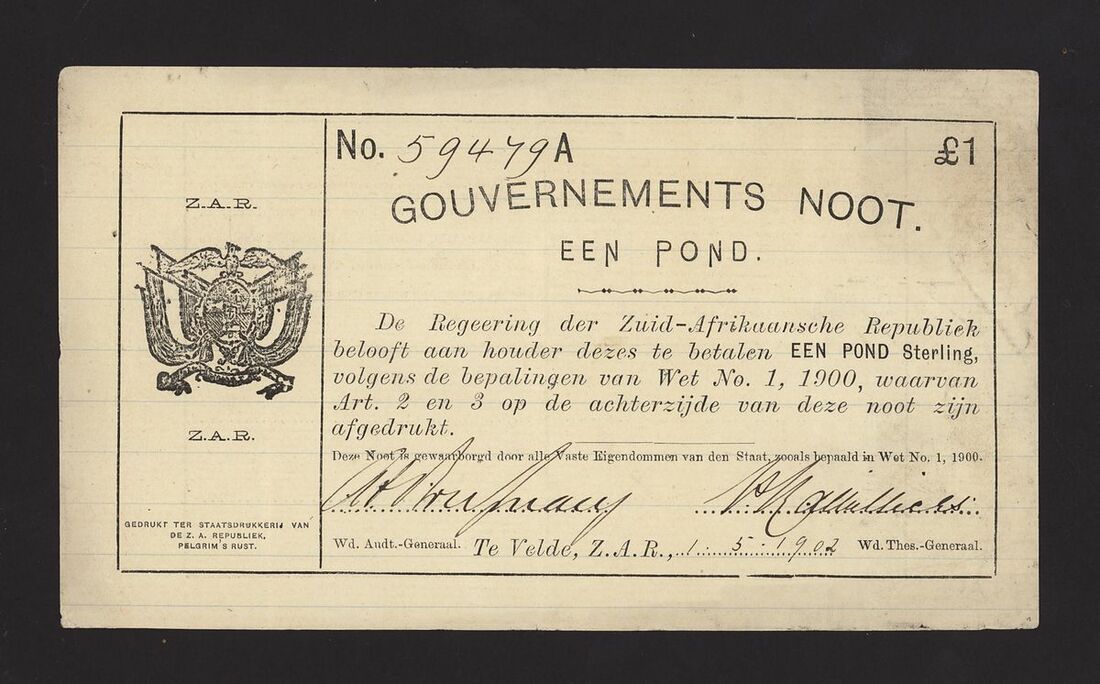 Z.A.R.
Z.A.R.
GEDRUKT TER STAATSDRUKKERIJ VAN
DE Z. A. REPUBLIEK,
PELGRIM'S RUST.
No. 59479 A
£1
GOUVERNEMENTS NOOT.
EEN POND.
De Regeering der Zuid-Afrikaansche Republiek
belooft aan houder dezes te betalen EEN POND Sterling,
volgens de bepalingen van Wet No. 1, 1900, waarvan
Art. 2 en 3 op de achterzijde van deze noot zijn
afgedrukt.
Deze Noot is gewaarborgd door alle Vaste Eigendommen van den Staat, zooals bepaald in Wet No. 1, 1900.
Wd. Audt.-Generaal. Te Velde, Z.A.R., 1 . 5 . 1902 Wd. Thes.-Generaal.